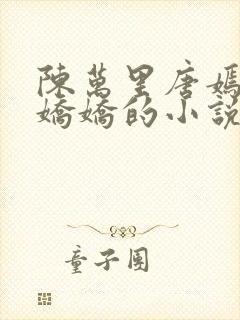 陳萬里唐嫣
嬌嬌的小說
童子團